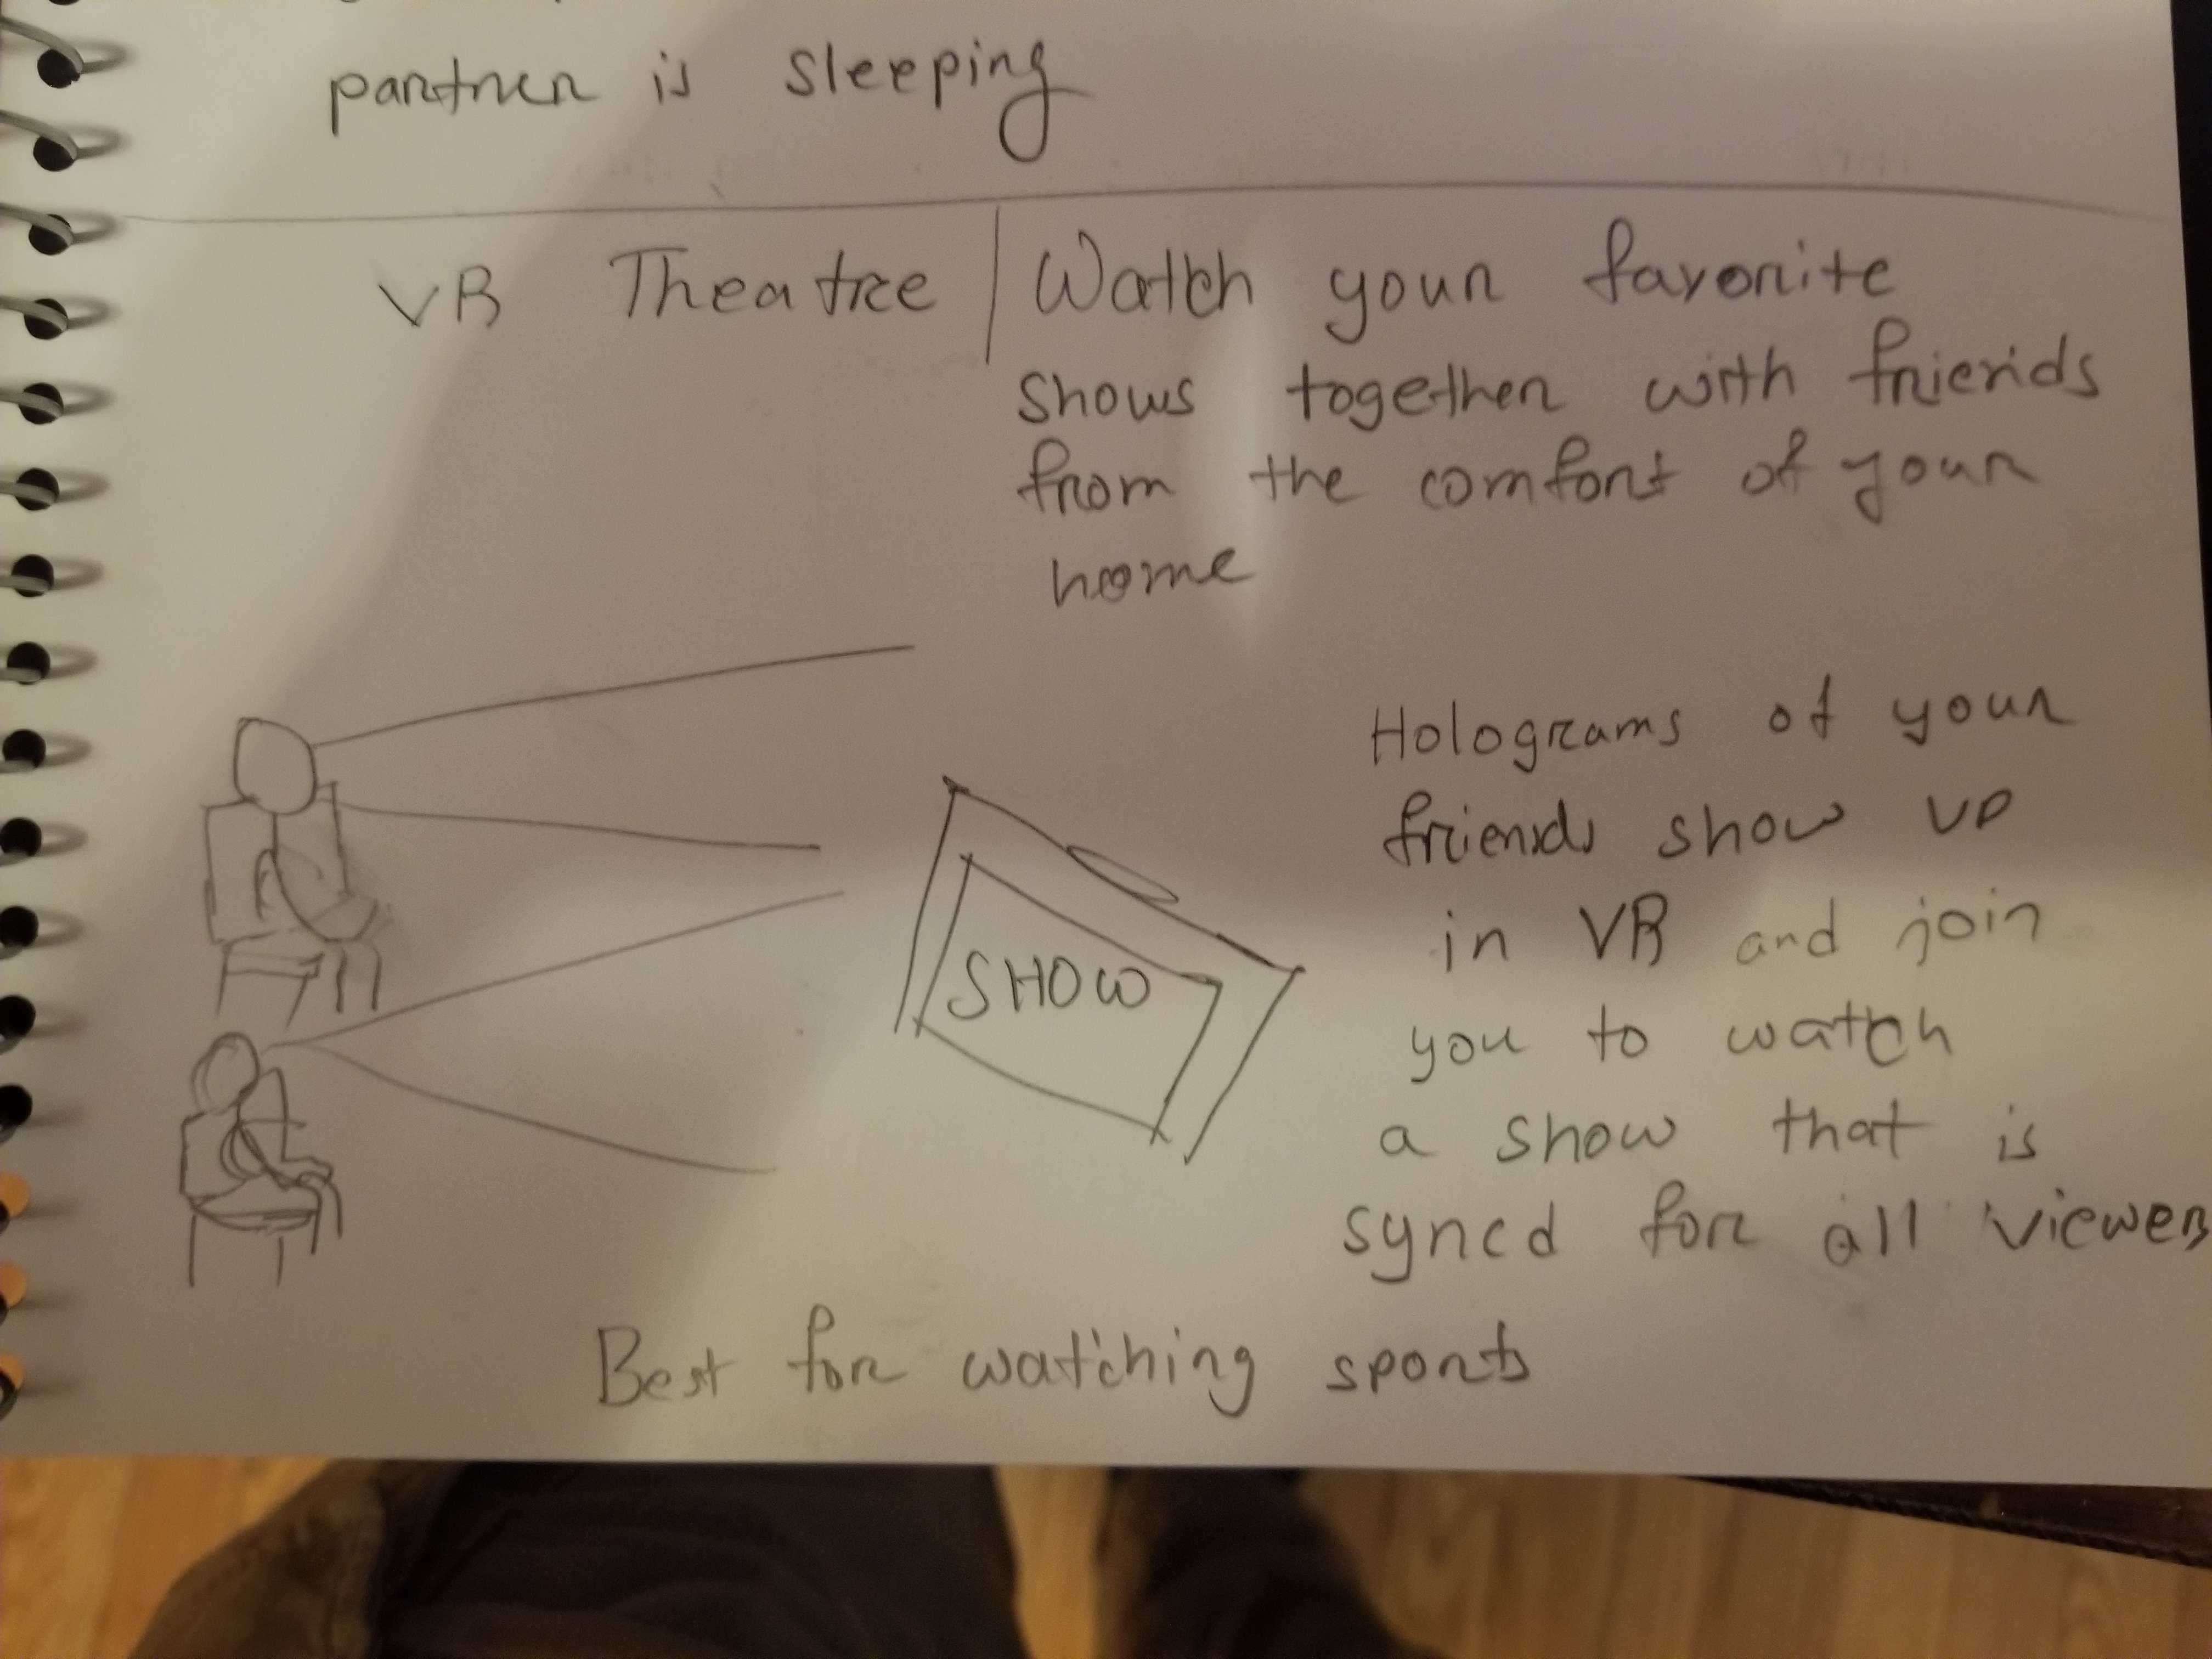 partner is sleeping
VR Theatre
Watch your favorite
shows together with friends
from the comfort of your
home
Holograms of your
friends show up
in VR and join
you to watch
a show that is
syncd for all viewers
SHOW
Best for watching sports